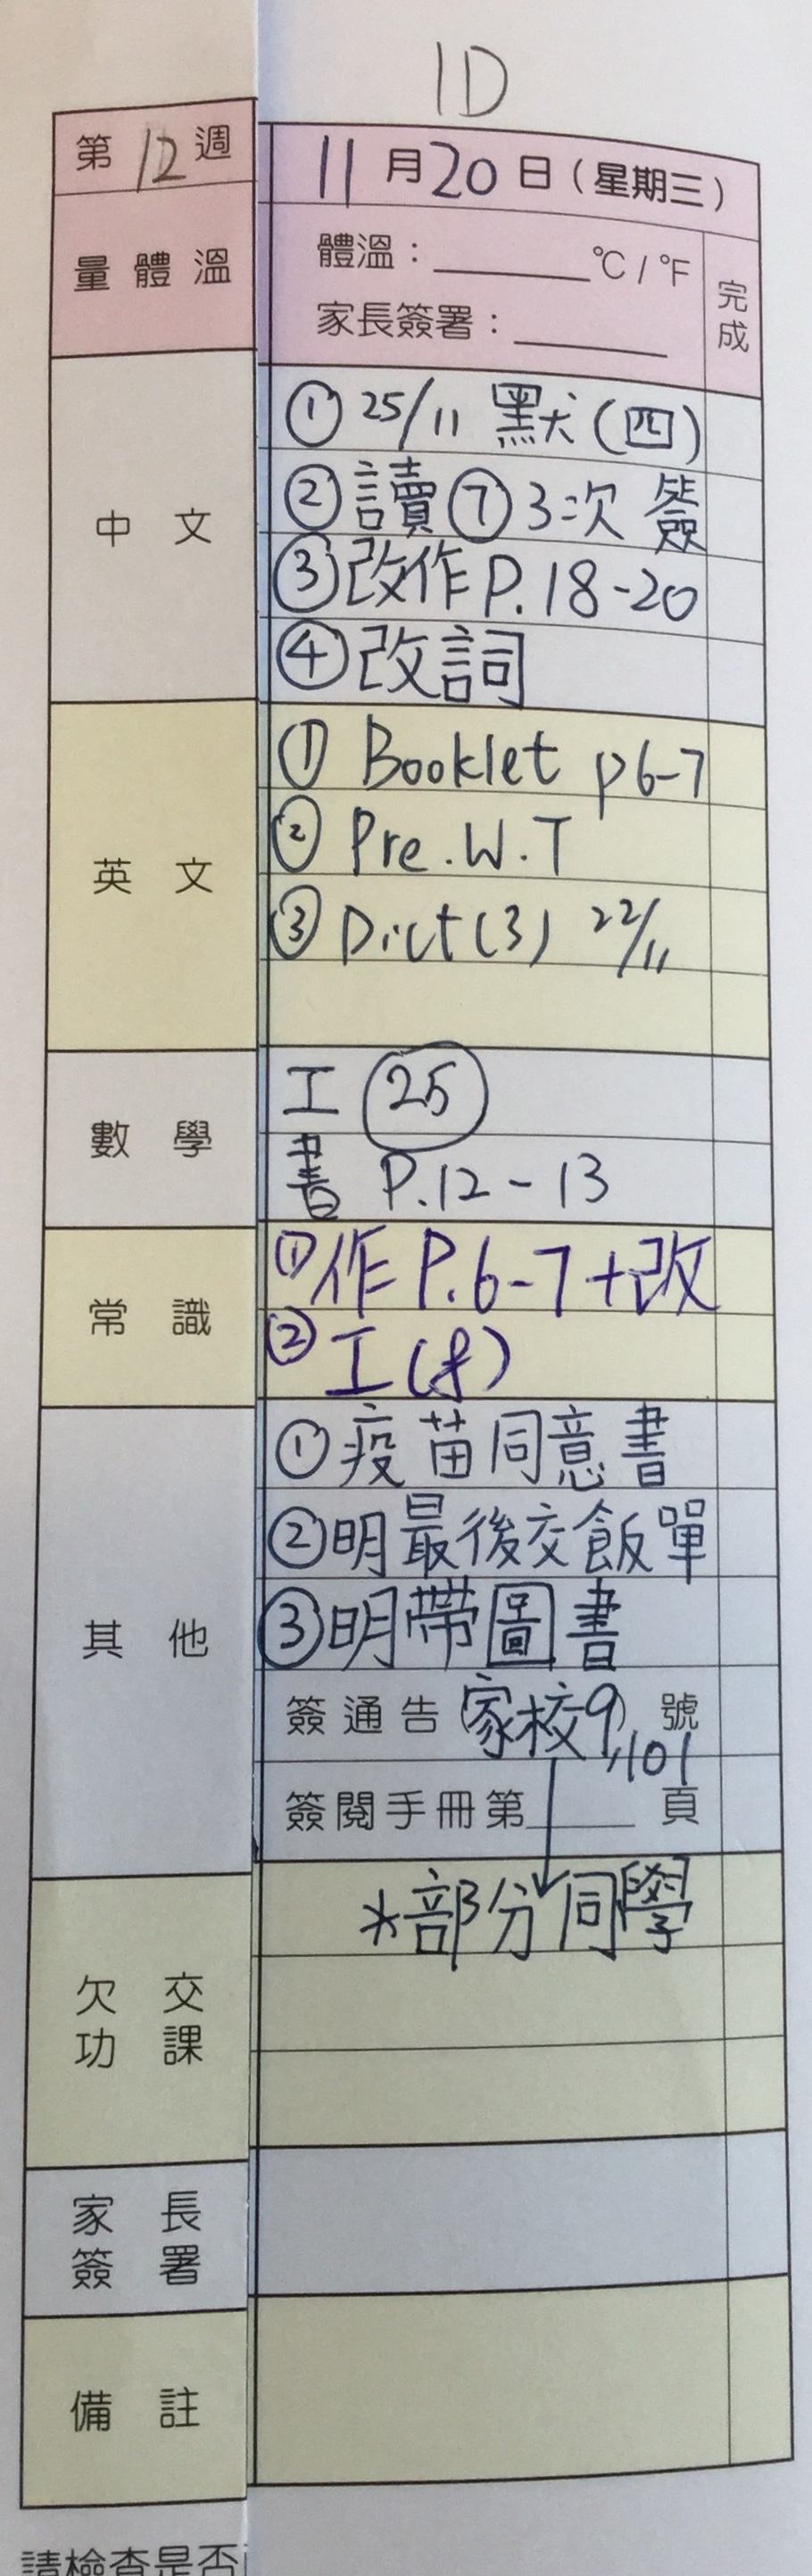 1D
第12週
11月20日(星期三)
量體溫
體溫:______°C / °F
家長簽署:______
完成
中文
① 25/11 默(四)
② 讀⑦3次 簽
③ 改作P.18-20
④ 改詞
英文
① Booklet p6-7
② Pre.W.T
③ Dict(3) 22/11
數學
工 ㉕
書 P.12-13
常識
① 作P.6-7+改
② 工(8)
其他
① 疫苗同意書
② 明最後交飯單
③ 明帶圖書
簽通告(家校9,101)號
簽閱手冊第______頁
*部分同學
欠交
功課
家長
簽署
備註
請檢查是否